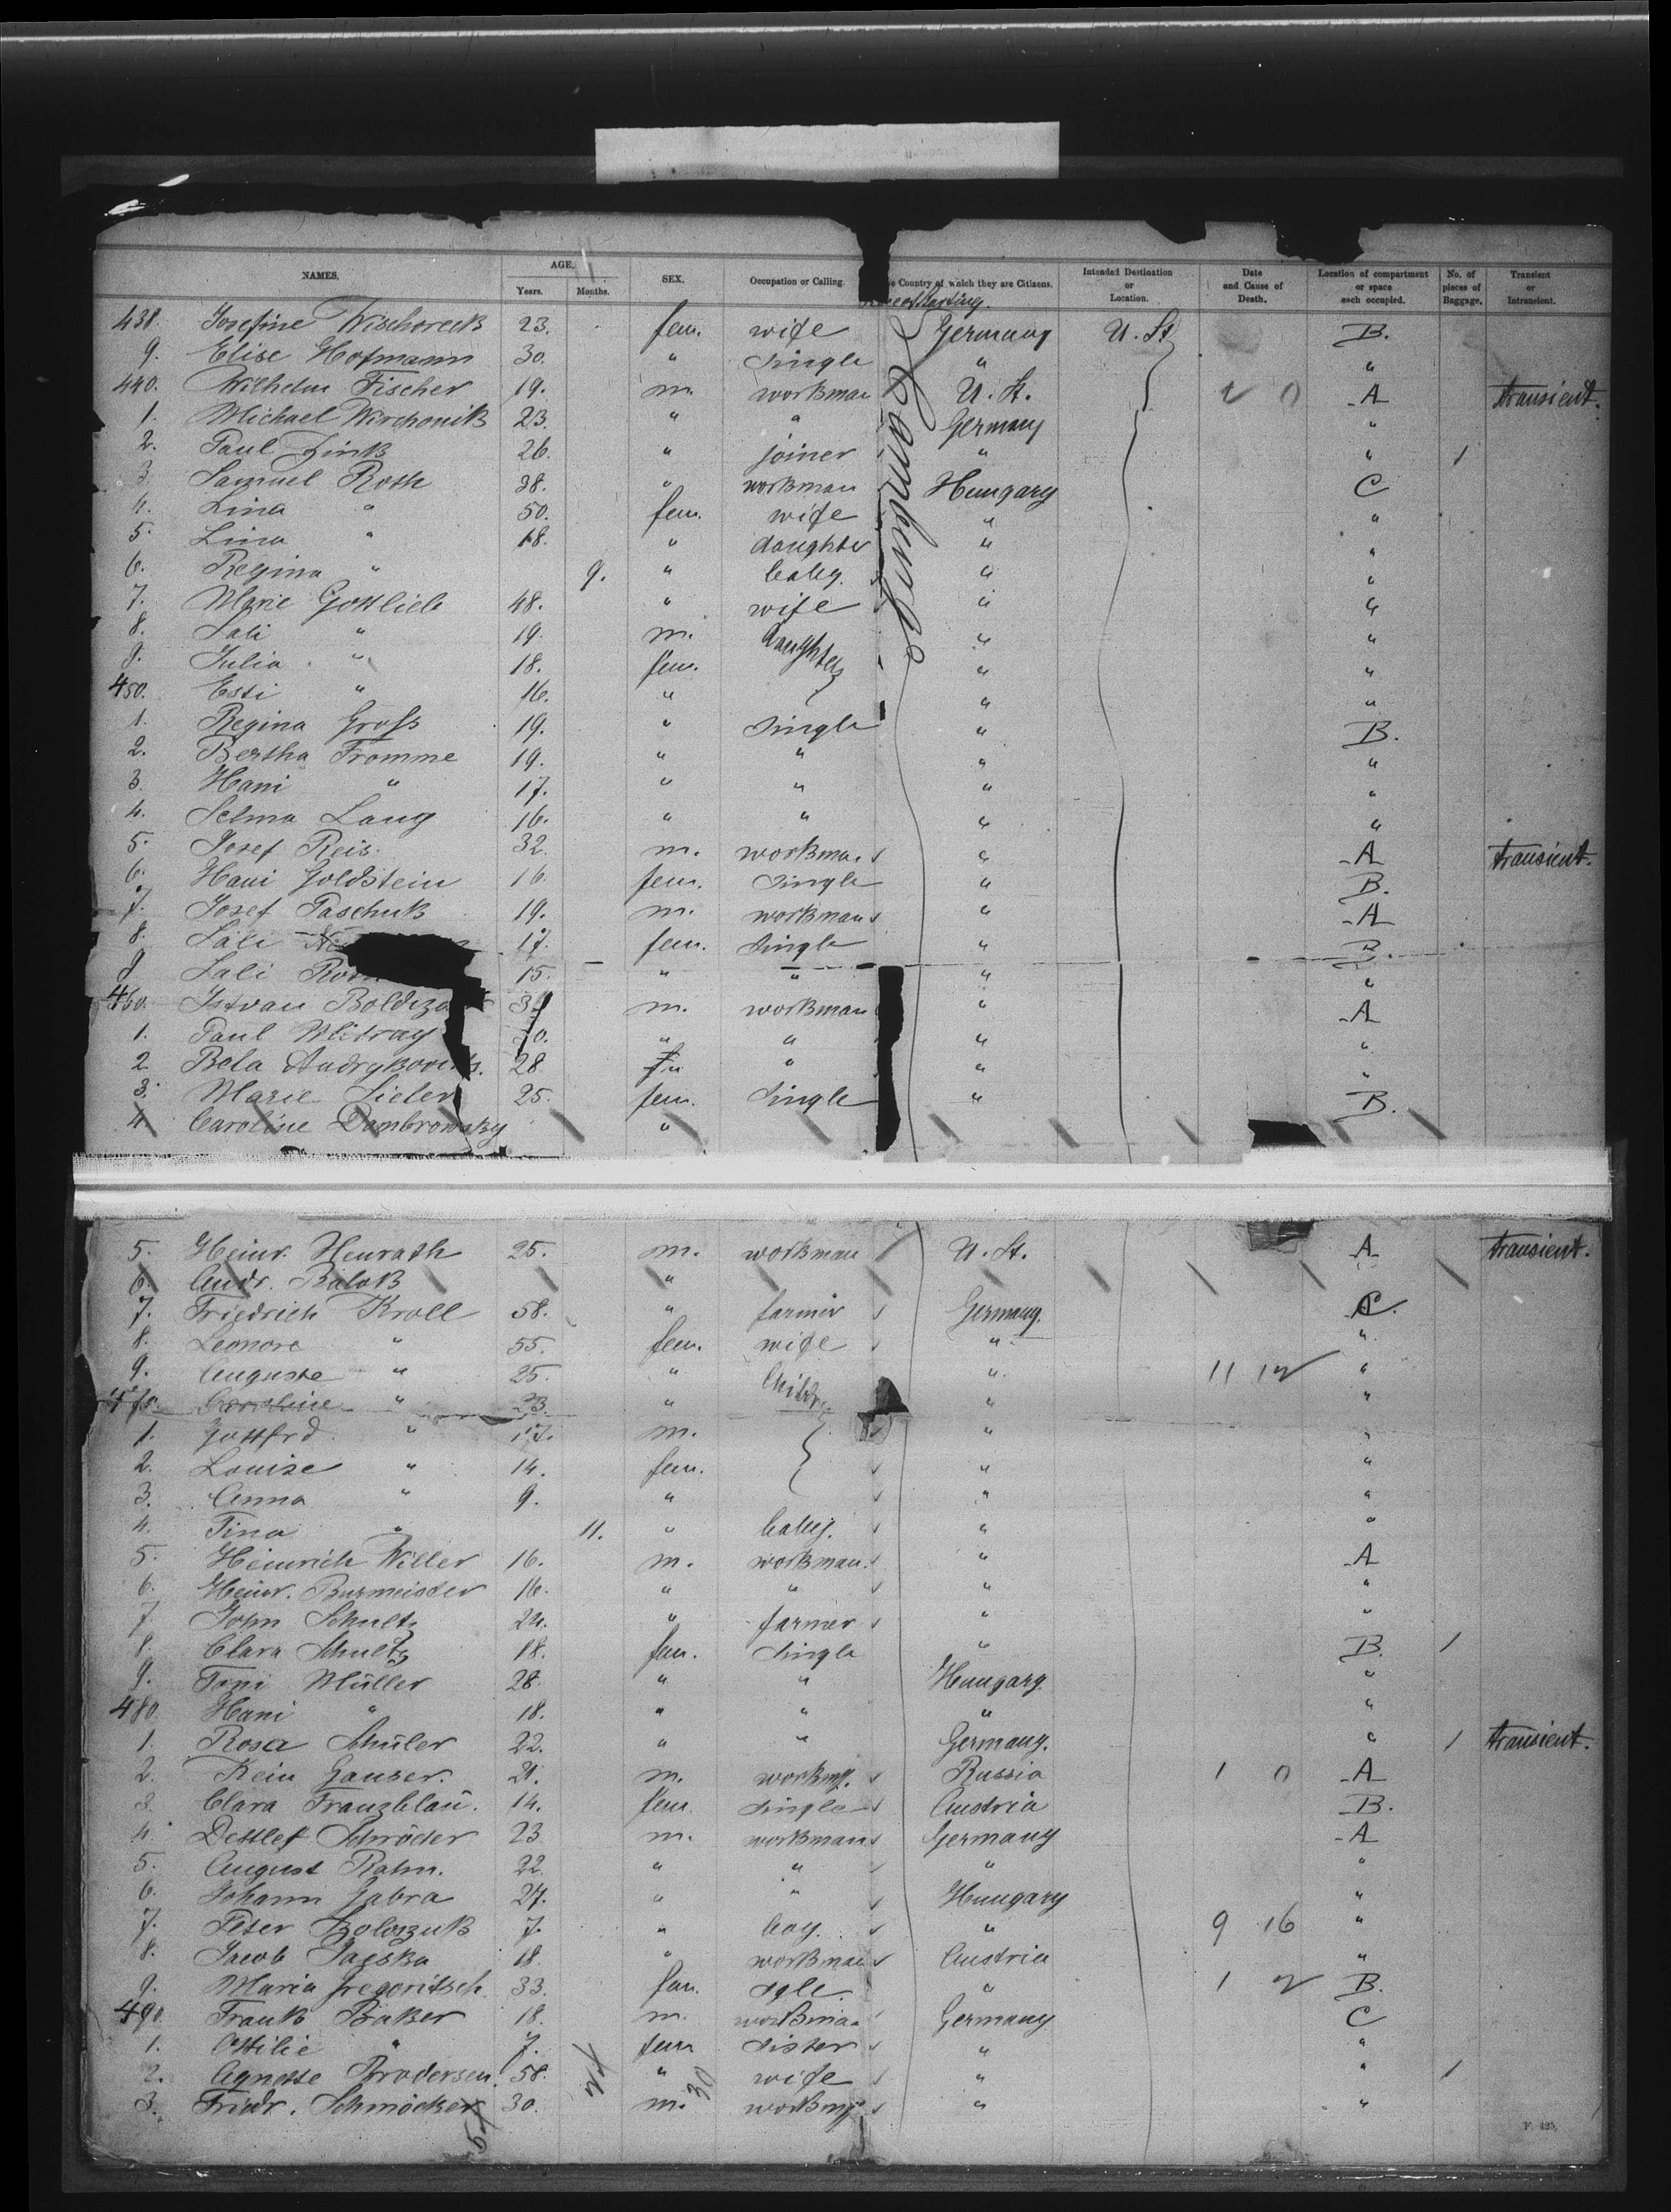 NAMES. AGE. Years. Months. SEX. Occupation or Calling. Country of which they are Citizens. Intended Destination or Location. Date and Cause of Death. Location of compartment or space each occupied. No. of pieces of Baggage. Transient or Intransient.
438. Josefine Wischoreck 23. fem. wife Germany U. St. B.
9. Elise Hofmann 30. " single " "
440. Wilhelm Fischer 19. m. workman U. St. A transient.
1. Michael Wirchonik 23. " " Germany "
2. Paul Zink 26. " joiner " " 1
3. Samuel Roth 38. " workman Hungary C
4. Lina " 50. fem. wife " "
5. Lina " 18. " daughter " "
6. Regina " 9. " baby. " "
7. Marie Gottlieb 48. " wife " "
8. Sali " 19. m. daughters " "
9. Julia " 18. fem. " "
450. Esti " 16. " " "
1. Regina Gross 19. " single " B.
2. Bertha Fromme 19. " " " "
3. Hani " 17. " " " "
4. Selma Lang 16. " " " "
5. Josef Reis. 32. m. workman " A transient.
6. Hani Goldstein 16. fem. single " B.
7. Josef Paschuk 19. m. workman " A
8. Sali 17. fem. single " B.
9. Sali 15. " " " "
460. Istvan m. workman " A
1. Paul Mitray " " " "
2 Bela 28 " " "
3. Marie 25. fem. single " B.
4. Caroline Dombrowsky "
5. Heinr. Henrath 25. m. workman U. St. A transient.
6. Andr. Balok "
7. Friedrich Kroll 58. " farmer Germany. C.
8. Leonore " 55. fem. wife " "
9. Auguste " 25. " Childr. " 11 12 "
470. Caroline " 23. " " "
1. Gottfrd. " 17. m. "
2. Louise " 14. fem. " "
3. Anna " 9. " " "
4. Tina " 11. " baby. " "
5. Heinrich Willer 16. m. workman. " A
6. Heinr. Burmeister 16. " " " "
7. John Schultz 24. " farmer " "
8. Clara Schultz 18. fem. single " B. 1
9. Toni Müller 28. " " Hungary. "
480. Hani " 18. " " " "
1. Rosa Schüler 22. " " Germany. " 1 transient.
2. Rein Gauser. 21. m. workm. Russia 1 0 A
3. Clara Franzblau. 14. fem. single Austria B.
4. Dettlef Schröder 23 m. workman Germany A
5. August Rahn. 22. " " " "
6. Johann Gabra 27. " " Hungary "
7. Peter Boloszuk 7. " boy. " 9 16 "
8. Jacob 18. " workman Austria "
9. Maria Gregoritsch 33. fem. sgle. " 1 B.
490. Frank Baker 18. m. workman Germany C
1. Ottilie " 7. fem sister " "
2. Agnesse Brodersen. 58. " wife " " 1
3. Friedr. Schmöcker 30. m. workm. " "
30
F. 425.